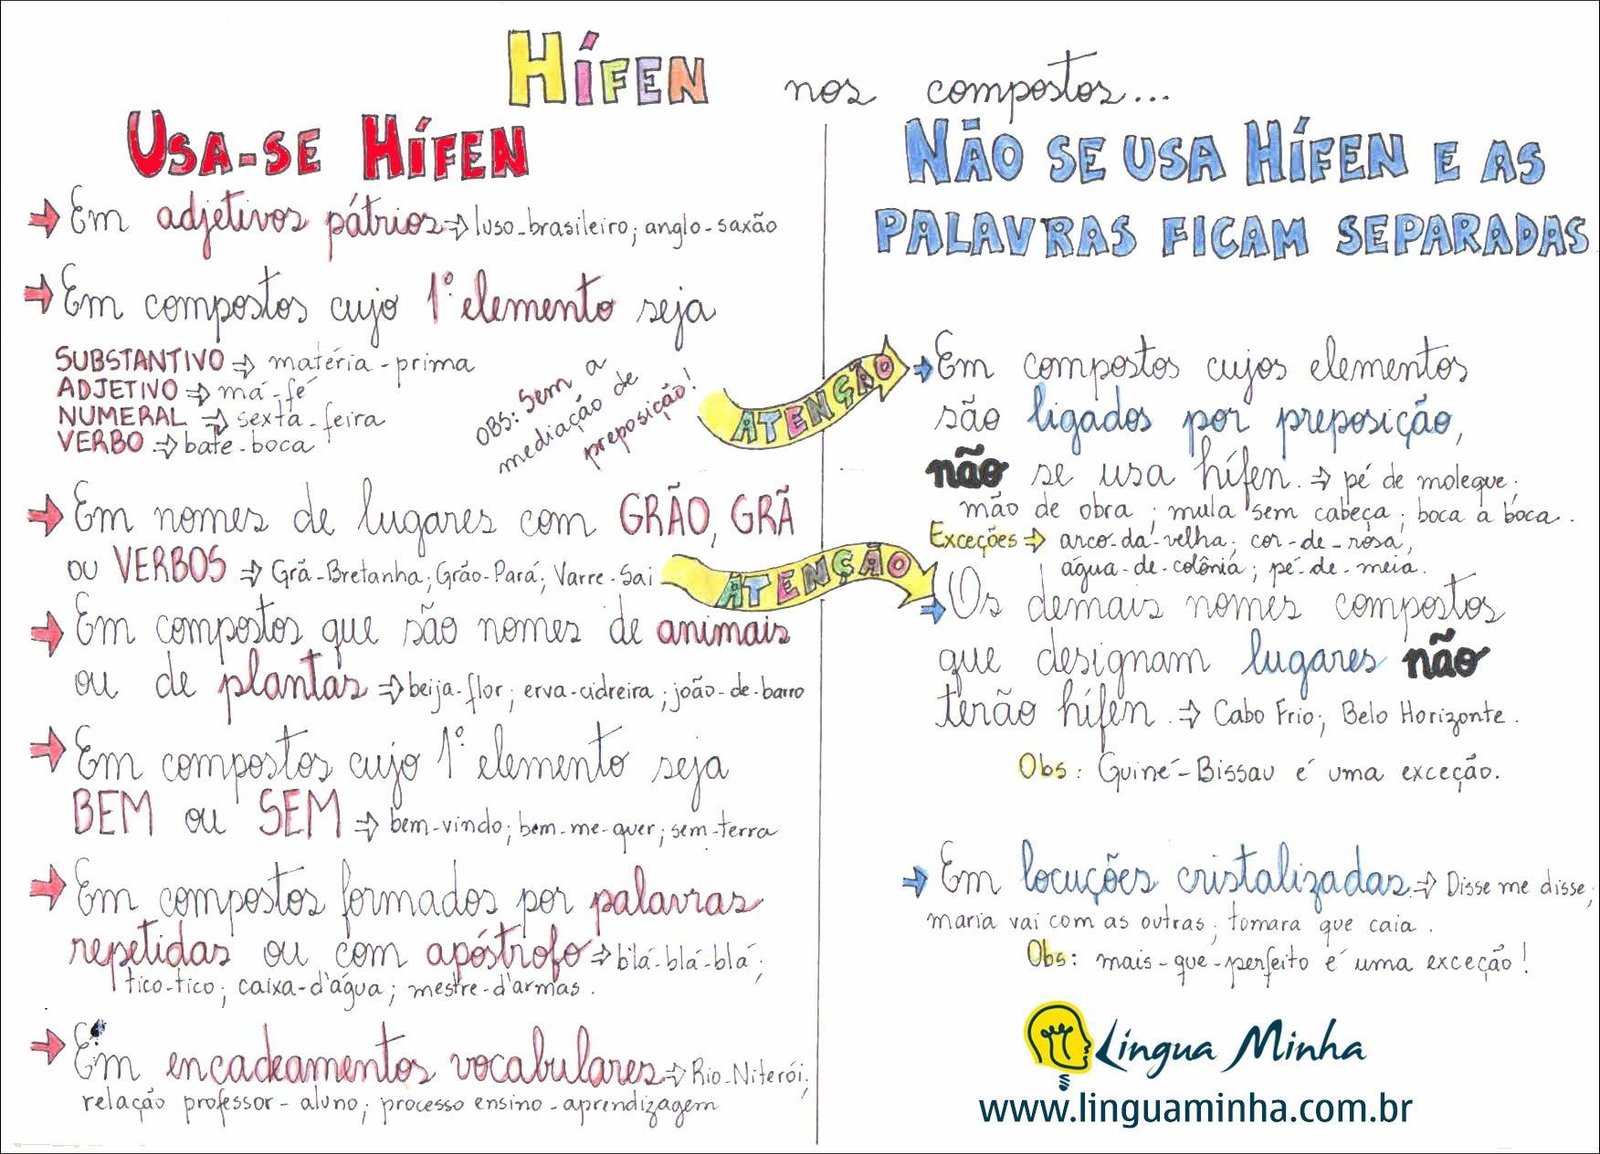 HÍFEN nos compostos...
USA-SE HÍFEN
→ Em adjetivos pátrios ⇒ luso-brasileiro; anglo-saxão
→ Em compostos cujo 1º elemento seja
SUBSTANTIVO ⇒ matéria-prima
ADJETIVO ⇒ má-fé
NUMERAL ⇒ sexta-feira
VERBO ⇒ bate-boca
OBS: Sem a
mediação de
preposição!
ATENÇÃO
→ Em nomes de lugares com GRÃO, GRÃ
ou VERBOS ⇒ Grã-Bretanha; Grão-Pará; Varre-Sai
ATENÇÃO
→ Em compostos que são nomes de animais
ou de plantas ⇒ beija-flor; erva-cidreira; joão-de-barro
→ Em compostos cujo 1º elemento seja
BEM ou SEM ⇒ bem-vindo; bem-me-quer; sem-terra
→ Em compostos formados por palavras
repetidas ou com apóstrofo ⇒ blá-blá-blá;
tico-tico; caixa-d'água; mestre-d'armas.
→ Em encadeamentos vocabulares ⇒ Rio-Niterói;
relação professor-aluno; processo ensino-aprendizagem
NÃO SE USA HÍFEN E AS
PALAVRAS FICAM SEPARADAS
→ Em compostos cujos elementos
são ligados por preposição,
não se usa hífen. ⇒ pé de moleque;
mão de obra; mula sem cabeça; boca a boca.
Exceções ⇒ arco-da-velha; cor-de-rosa,
água-de-colônia; pé-de-meia.
→ Os demais nomes compostos
que designam lugares não
terão hífen. ⇒ Cabo Frio; Belo Horizonte.
Obs: Guiné-Bissau é uma exceção.
→ Em locuções cristalizadas ⇒ Disse me disse;
maria vai com as outras; tomara que caia.
Obs: mais-que-perfeito é uma exceção!
Língua Minha
www.linguaminha.com.br